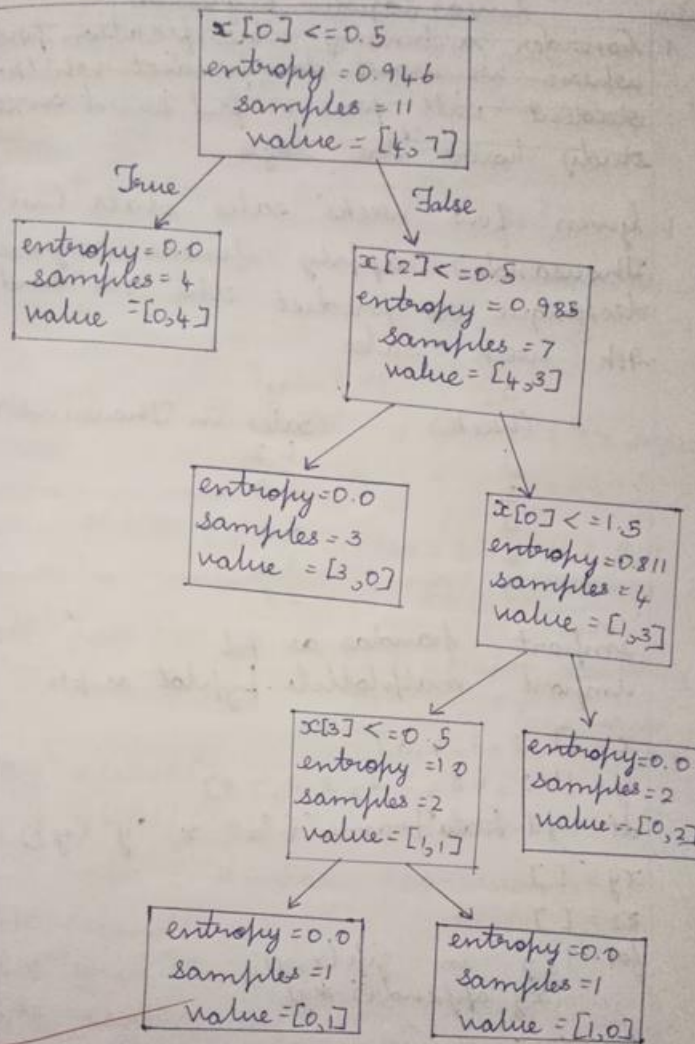 x[0] <=0.5
entropy =0.946
samples = 11
value = [4,7]
True
False
entropy=0.0
samples = 4
value =[0,4]
x[2] <=0.5
entropy = 0.985
samples = 7
value = [4,3]
entropy=0.0
samples = 3
value = [3,0]
x[0] <=1.5
entropy=0.811
samples = 4
value = [1,3]
x[3] <=0.5
entropy =1.0
samples=2
value = [1,1]
entropy=0.0
samples = 2
value = [0,2]
entropy =0.0
samples =1
value =[0,1]
entropy =0.0
samples =1
value = [1,0]